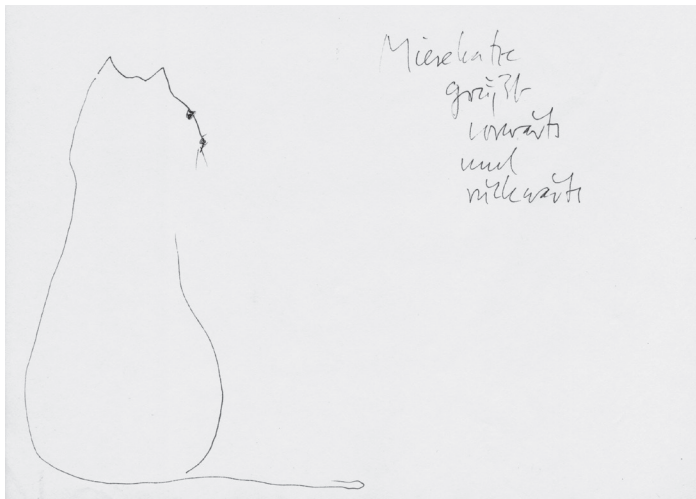 Miesekatze
grüßt
vorwärts
und
rückwärts